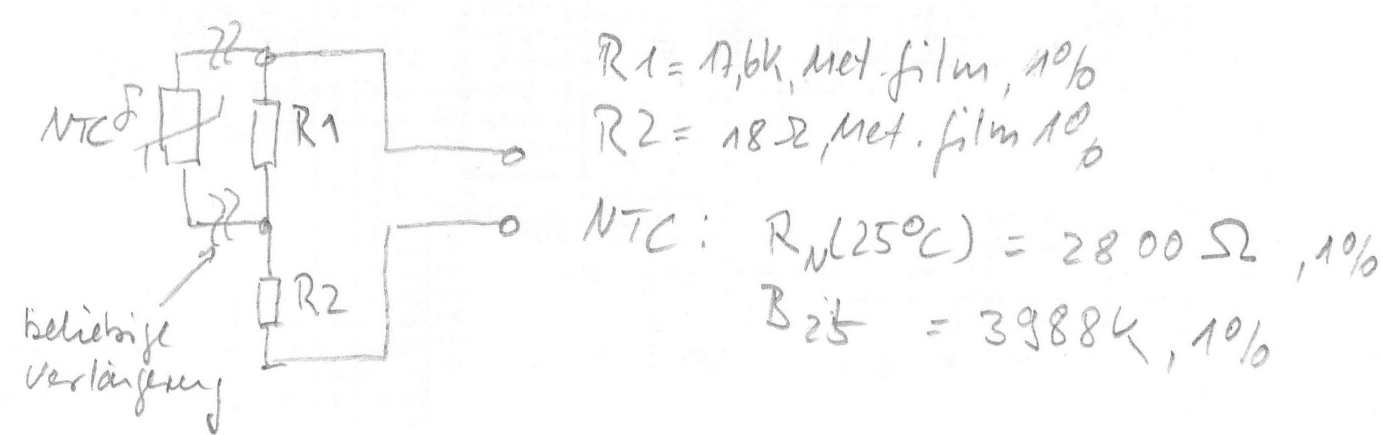 R1 = 17,6k, Met. film, 1%
R2 = 18Ω, Met. film 1%
NTC ϑ
R1
NTC : R_N(25°C) = 2800 Ω , 1%
B_25 = 3988K, 1%
R2
beliebige
Verlängerung